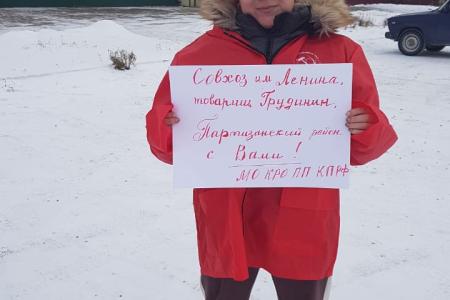 Совхоз им Ленина,
товарищ Грудинин,
Партизанский район
с Вами!
МО КРО ПП КПРФ